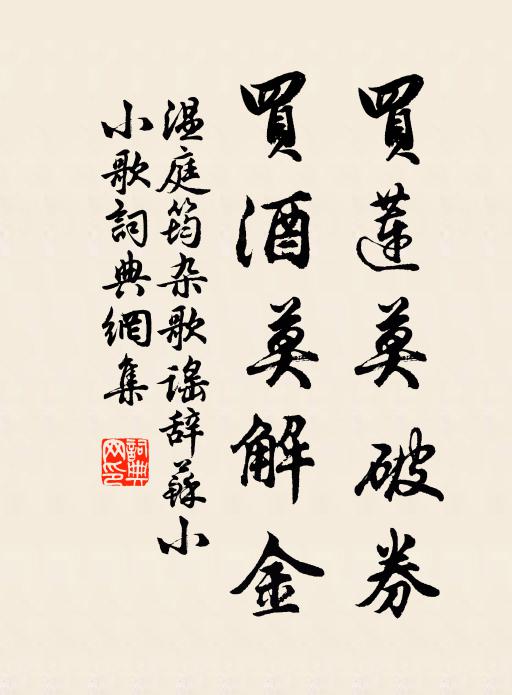 買蓮莫破券
買酒莫解金
温庭筠杂歌謡辞蘇小
小歌詞典網集
詞典网印